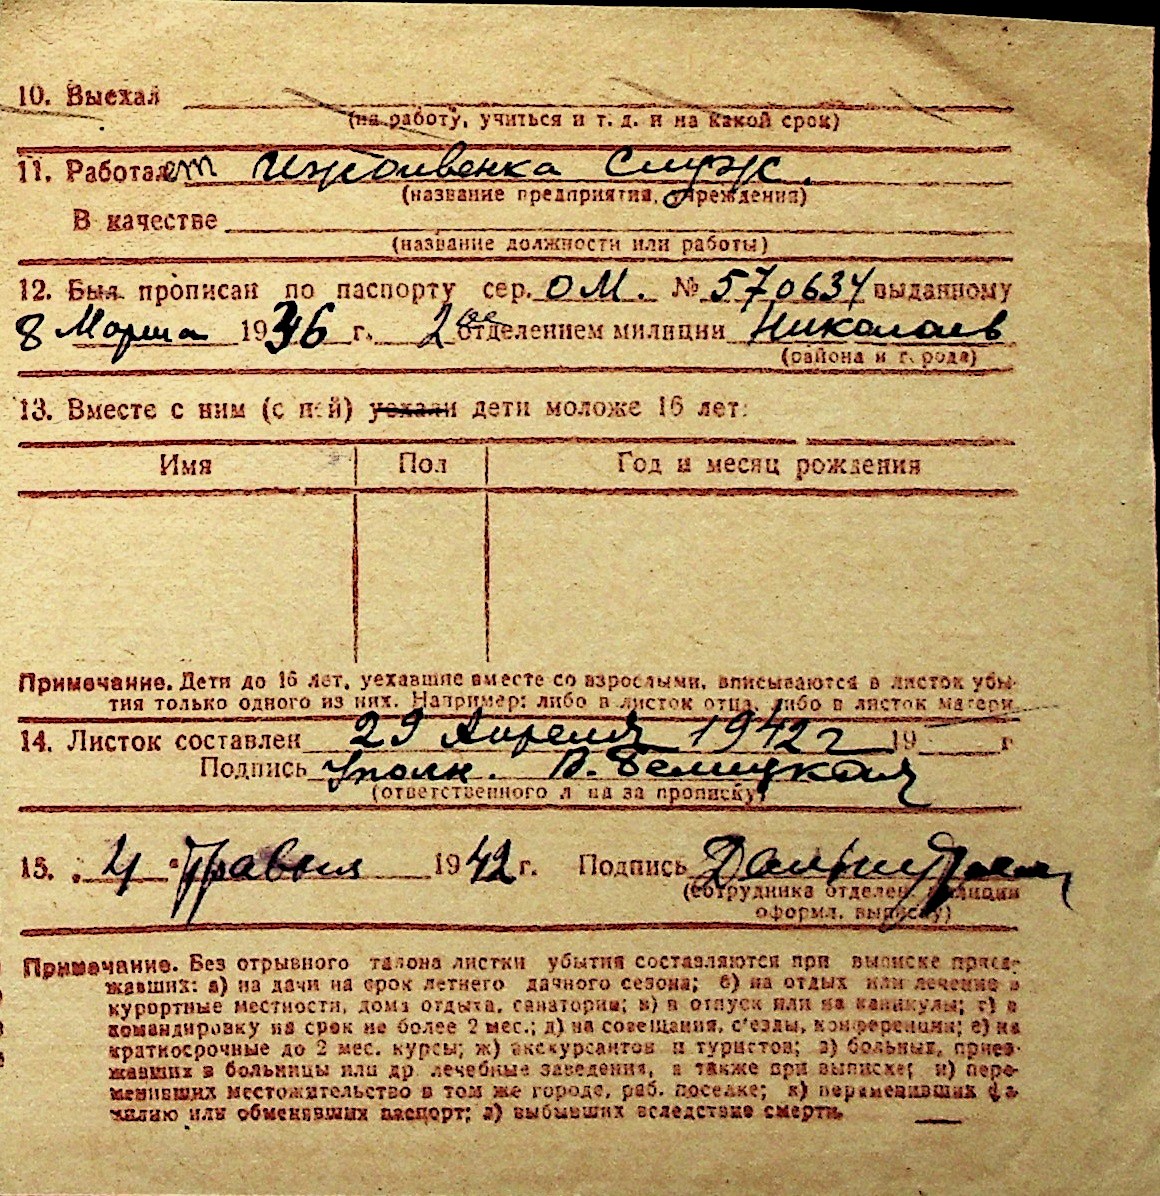 10. Выехал
(на работу, учиться и т. д. и на какой срок)
11. Работает Иждивенка Служ.
(название предприятия, учреждения)
В качестве
(название должности или работы)
12. Был прописан по паспорту сер. ОМ. № 570634 выданному
8 Марта 1936 г. 2ое отделением милиции Николаев
(района и города)
13. Вместе с ним (с ней) уехали дети моложе 16 лет:
Имя Пол Год и месяц рождения
Примечание. Дети до 16 лет, уехавшие вместе со взрослыми, вписываются в листок убы-
тия только одного из них. Например: либо в листок отца, либо в листок матери
14. Листок составлен 29 Апреля 1942 г 19 г
Подпись Уполн. В. Белицкая
(ответственного лица за прописку)
15. 4 Травня 1942 г. Подпись
(сотрудника отделен. милиции
оформл. выписку)
Примечание. Без отрывного талона листки убытия составляются при выписке приез-
жавших: а) на дачи на срок летнего дачного сезона; б) на отдых или лечение в
курортные местности, дома отдыха, санатории; в) в отпуск или на каникулы; г) в
командировку на срок не более 2 мес.; д) на совещания, с'езды, конференции; е) на
краткосрочные до 2 мес. курсы; ж) экскурсантов и туристов; з) больных, приез-
жавших в больницы или др. лечебные заведения, а также при выписке; и) пере-
менивших местожительство в том же городе, раб. поселке; к) переменивших фа-
милию или обменявших паспорт; л) выбывших вследствие смерти.